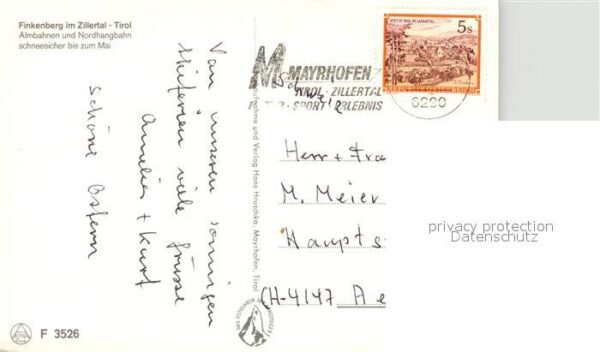 Finkenberg im Zillertal - Tirol
Almbahnen und Nordhangbahn
schneesicher bis zum Mai
Von unseren sonnigen
Skiferien viele Grüsse
Amelies + Kurt
Schöne Ostern
5s
REPUBLIK ÖSTERREICH
MAYRHOFEN
TIROL · ZILLERTAL
SPORT · ERLEBNIS
6290
Aufnahme und Verlag Hans Hruschka, Mayrhofen, Tirol
Herr + Fra
M. Meier
Haupts
CH-4147 Ae
privacy protection
Datenschutz
F 3526